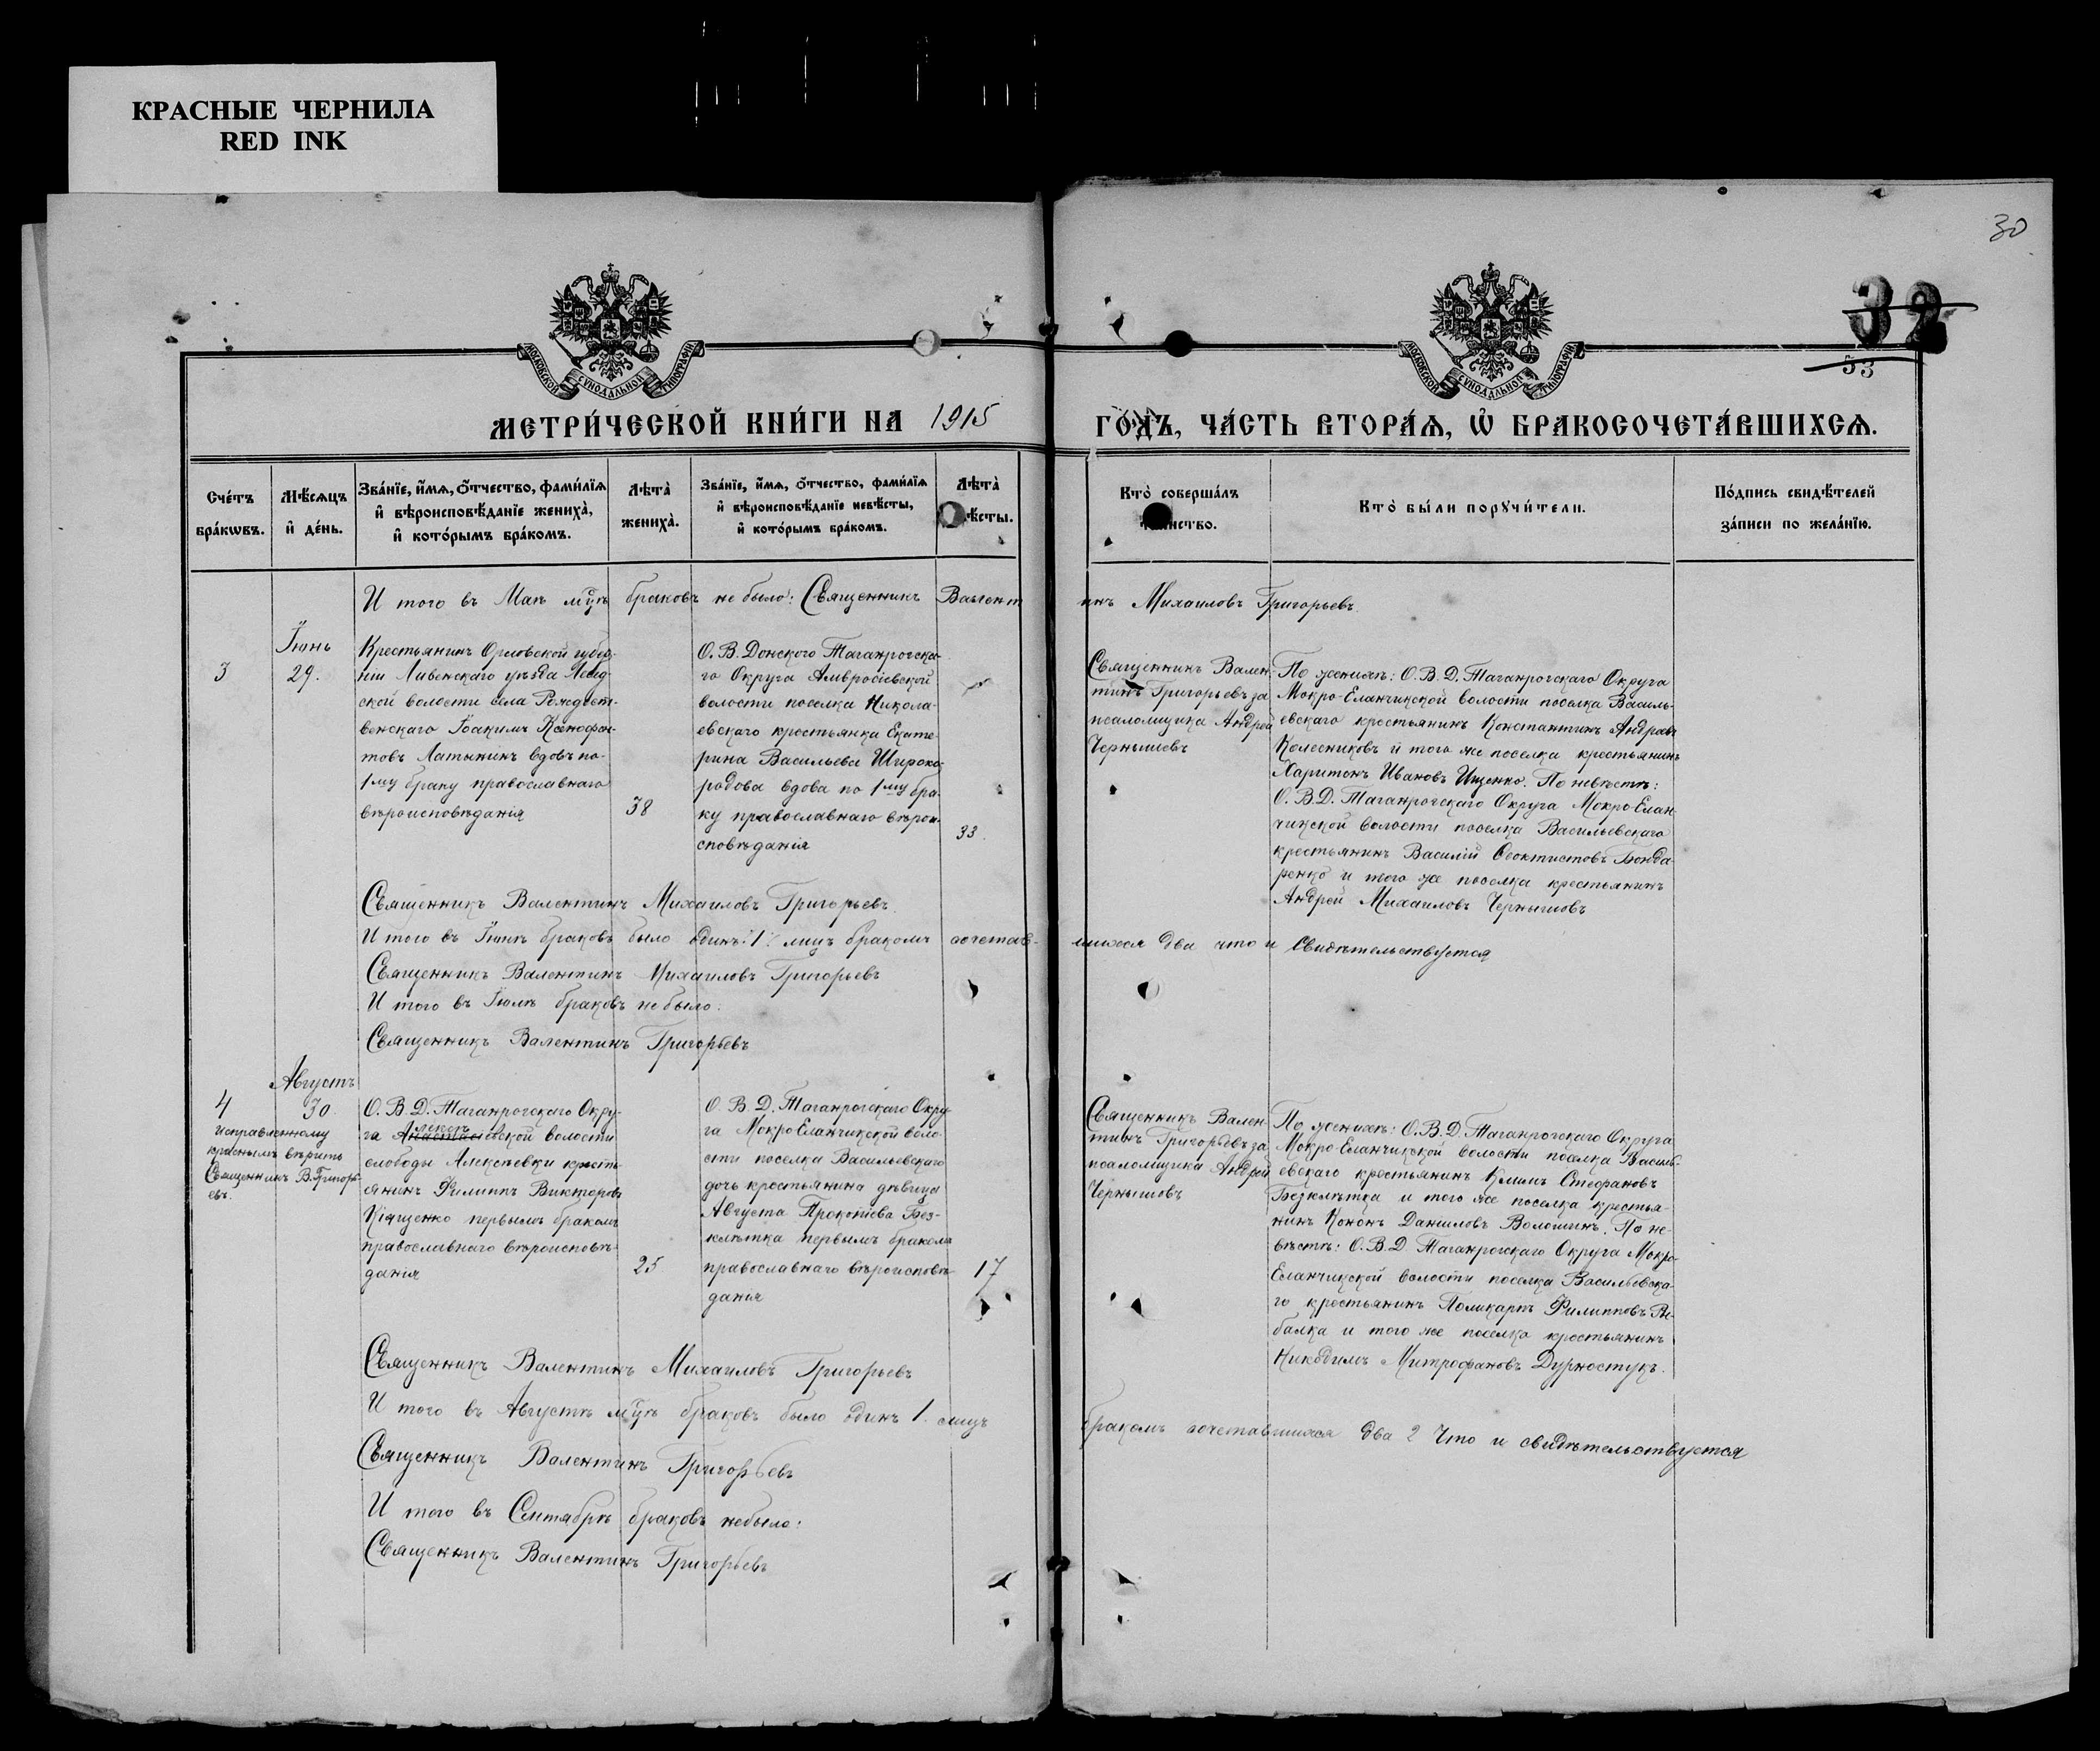 КРАСНЫЕ ЧЕРНИЛА
RED INK
30
32
53
МОСКОВСКОЙ СѴНОДАЛЬНОЙ ТИПОГРАФІИ
МОСКОВСКОЙ СѴНОДАЛЬНОЙ ТИПОГРАФІИ
МЕТРИ́ЧЕСКОЙ КНИ́ГИ НА 1915 ГО́ДЪ, ЧА́СТЬ ВТОРА́Я, Ѡ҆ БРАКОСОЧЕТА́ВШИХСЯ.
Сче́тъ
бра́кѡвъ.
Мѣ́сяцъ
и҆ де́нь.
Зва́нїе, и҆́мя, о҆́тчество, фами́лїя
и҆ вѣроисповѣ́данїе жениха̀,
и҆ кото́рымъ бра́комъ.
Лѣта̀
жениха̀.
Зва́нїе, и҆́мя, о҆́тчество, фами́лїя
и҆ вѣроисповѣ́данїе невѣ́сты,
и҆ кото́рымъ бра́комъ.
Лѣта̀
ѣ́сты.
Кто̀ соверша́лъ
та́инство.
Кто̀ бы́ли порꙋчи́тели.
По́дпись свидѣ́телей
за́писи по жела́нїю.
И того въ Маѣ м҃цѣ браковъ не было: Священникъ Валент инъ Михаиловъ Григорьевъ
Іюнь
3
29.
Крестьянинъ Орловской губер-
ніи Ливенскаго уѣзда
ской волости села Рождест-
венскаго Іоакимъ Ксенофон-
товъ Латынинъ вдовъ по
1му браку православнаго
вѣроисповѣданія
38
О. В. Донского Таганрогска-
го Округа Амвросіевской
волости поселка Никола-
евскаго крестьянка Екате-
рина Васильева Широко-
родова вдова по 1му бра-
ку православнаго вѣрои-
сповѣданія
33.
Священникъ Вален-
тинъ Григорьевъ за
псаломщика Андрей
Чернышовъ
По женихѣ: О. В. Д. Таганрогскаго Округа
Мокро-Еланчикской волости поселка Василь-
евскаго крестьянинъ Константинъ Андреевъ
Колесниковъ и того же поселка крестьянинъ
Харитонъ Ивановъ Ищенко. По невѣстѣ:
О. В. Д. Таганрогскаго Округа Мокро-Елан-
чикской волости поселка Васильевскаго
крестьянинъ Василій Ѳеоктистовъ Бонда-
ренко и того же поселка крестьянинъ
Андрей Михаиловъ Чернышовъ
Священникъ Валентинъ Михаиловъ Григорьевъ
И того въ Іюнѣ браковъ было одинъ 1 лицъ бракомъ сочетав- шихся два что и свидѣтельствуется
Священникъ Валентинъ Михаиловъ Григорьевъ
И того въ Іюлѣ браковъ не было:
Священникъ Валентинъ Григорьевъ
Августъ
4
30
исправленному
краснымъ вѣрить
Священникъ В. Григорь-
евъ.
О. В. Д. Таганрогскаго Окру-
га Алексѣевской волости
слободы Алексѣевки кресть-
янинъ Филиппъ Викторовъ
Кіященко первымъ бракомъ
православнаго вѣроисповѣ-
данія
25
О. В. Д. Таганрогскаго Окру-
га Мокро-Еланчикской воло-
сти поселка Васильевскаго
дочь крестьянина дѣвица
Августа Прокопіева Без-
клѣтка первымъ бракомъ
православнаго вѣроисповѣ-
данія
17
Священникъ Вален-
тинъ Григорьевъ за
псаломщика Андрей
Чернышовъ
По женихѣ: О. В. Д. Таганрогскаго Округа
Мокро-Еланчикской волости поселка Василь-
евскаго крестьянинъ Климъ Стефановъ
Безклѣтка и того же поселка крестья-
нинъ Кононъ Даніиловъ Волошинъ. По не-
вѣстѣ: О. В. Д. Таганрогскаго Округа Мокро-
Еланчикской волости поселка Васильевска-
го крестьянинъ Поликарпъ Филипповъ Ры-
балка и того же поселка крестьянинъ
Никодимъ Митрофановъ Дурностукъ.
Священникъ Валентинъ Михаиловъ Григорьевъ
И того въ Августѣ м҃цѣ браковъ было одинъ 1. лицъ бракомъ сочетавшихся два 2 Что и свидѣтельствуется
Священникъ Валентинъ Григорьевъ
И того въ Сентябрѣ браковъ небыло:
Священникъ Валентинъ Григорьевъ